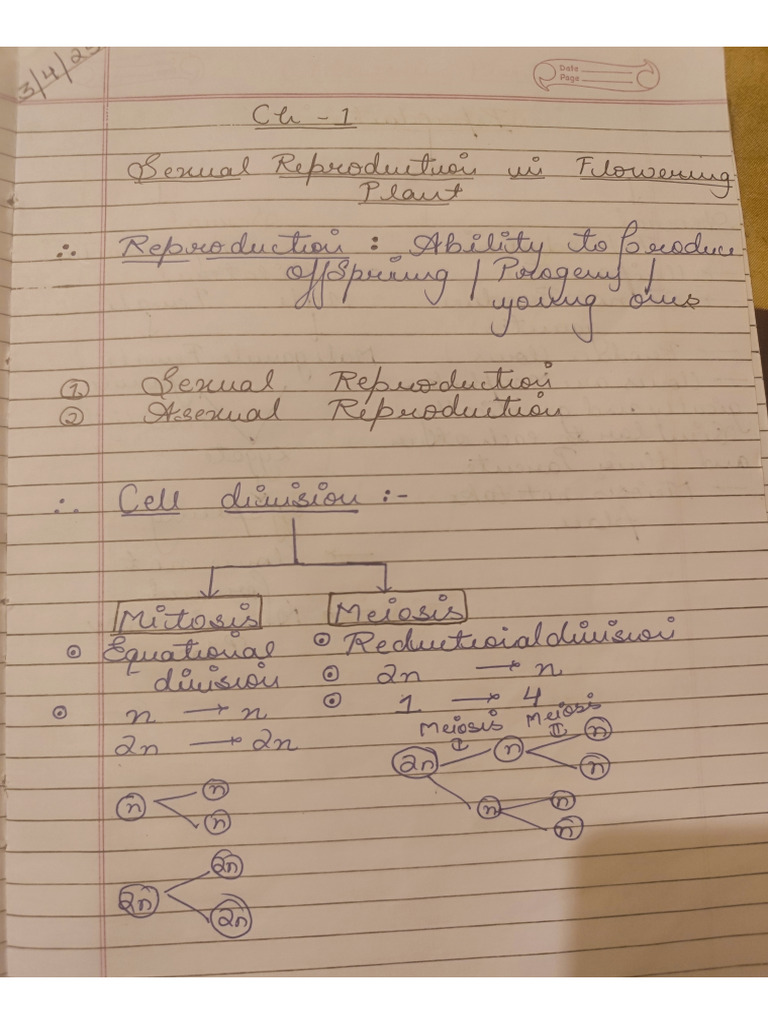 3/4/25
Date
Page
Ch - 1
Sexual Reproduction in Flowering
Plant
∴ Reproduction : Ability to produce
offspring / Progeny /
young ones
① Sexual Reproduction
② Asexual Reproduction
∴ Cell division :-
Mitosis Meiosis
⊙ Equational ⊙ Reductioial division
division ⊙ 2n → n
⊙ n → n ⊙ 1 → 4
2n → 2n
Meiosis I Meiosis II
2n n n
n
n n
n
n n
n
2n 2n
2n